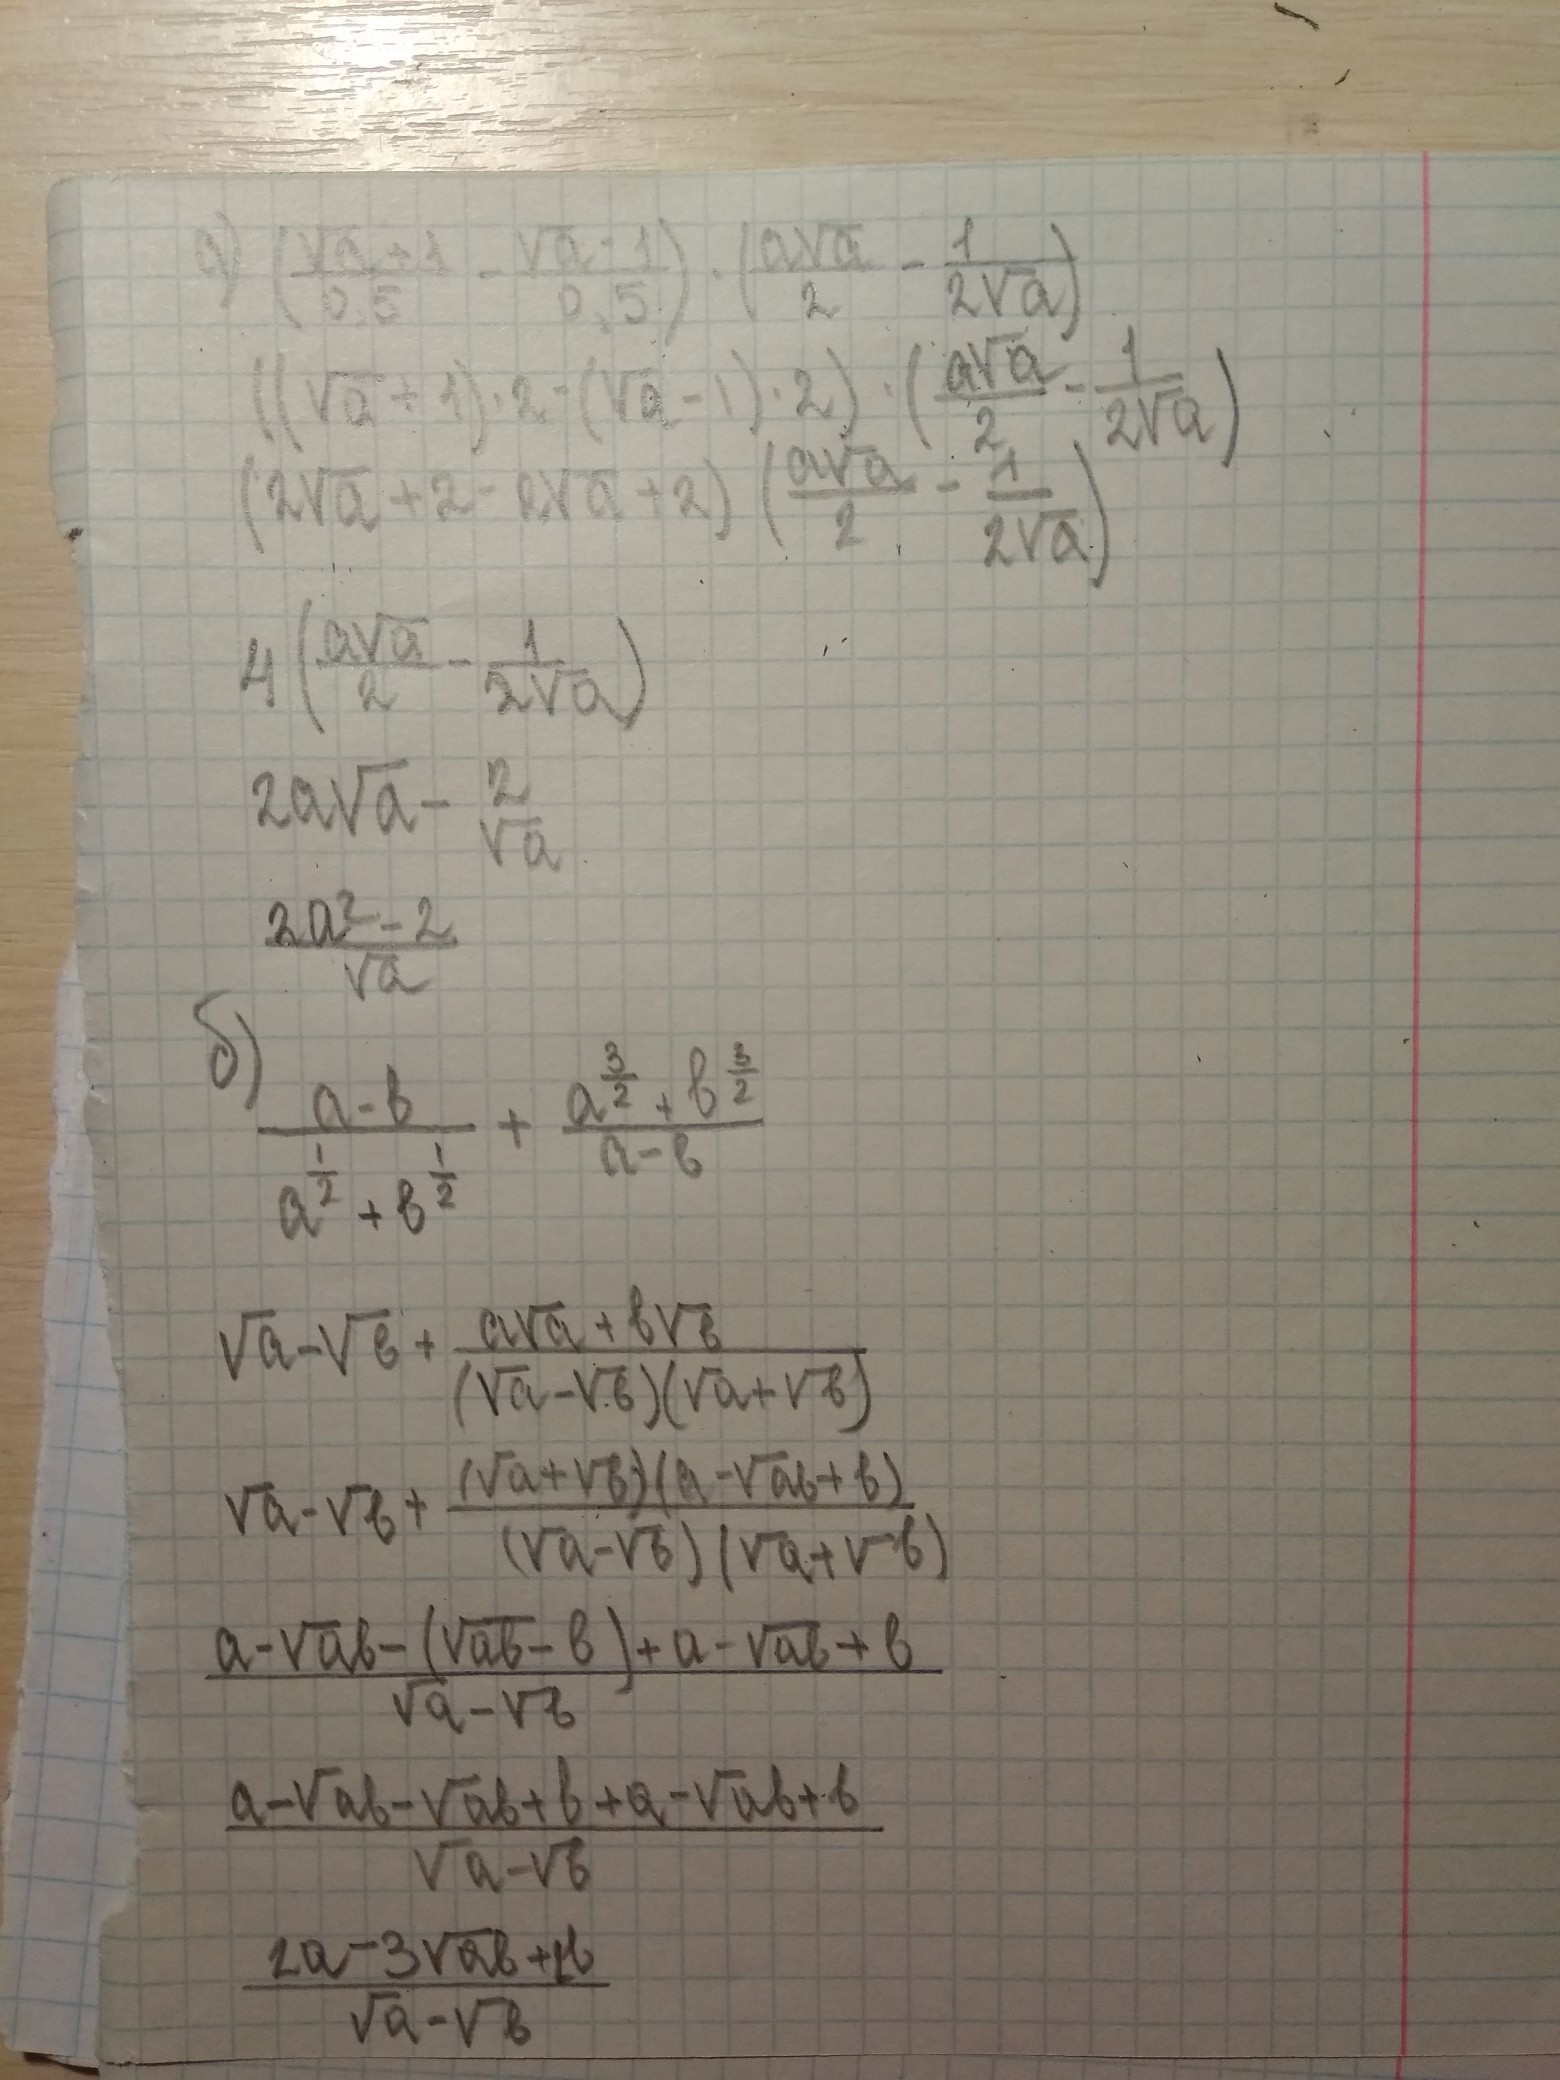 а) ((√a + 1)/0,5 - (√a - 1)/0,5) · (a√a/2 - 1/(2√a))
((√a + 1) · 2 - (√a - 1) · 2) · (a√a/2 - 1/(2√a))
(2√a + 2 - 2√a + 2) (a√a/2 - 1/(2√a))
4 (a√a/2 - 1/(2√a))
2a√a - 2/√a
(2a² - 2)/√a
б)
(a - b)/(a^(1/2) + b^(1/2)) + (a^(3/2) + b^(3/2))/(a - b)
√a - √b + (a√a + b√b)/((√a - √b)(√a + √b))
√a - √b + ((√a + √b)(a - √ab + b))/((√a - √b)(√a + √b))
(a - √ab - (√ab - b) + a - √ab + b)/(√a - √b)
(a - √ab - √ab + b + a - √ab + b)/(√a - √b)
(2a - 3√ab + 2b)/(√a - √b)